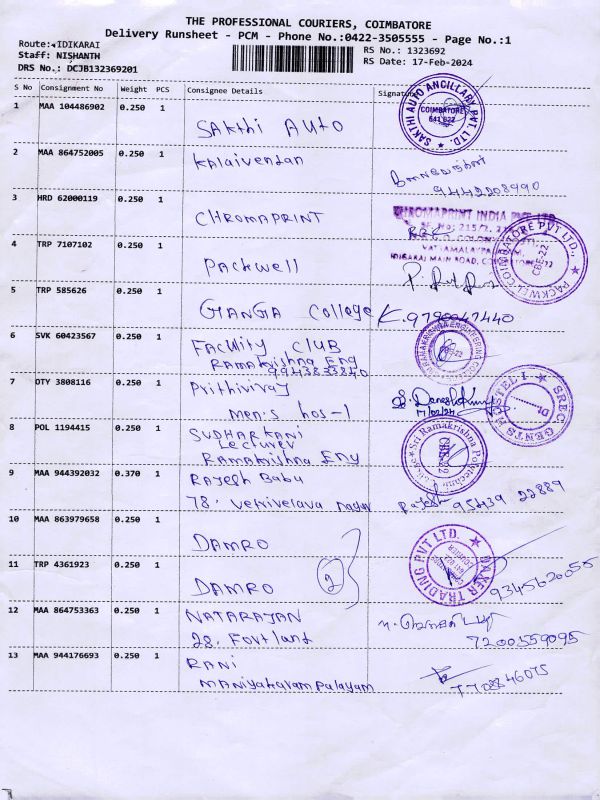 THE PROFESSIONAL COURIERS, COIMBATORE
Delivery Runsheet - PCM - Phone No.:0422-3505555 - Page No.:1
Route: IDIKARAI
RS No.: 1323692
Staff: NISHANTH
RS Date: 17-Feb-2024
DRS No.: DCJB132369201
S No Consignment No Weight PCS Consignee Details Signature
1 MAA 104486902 0.250 1
SAKthi AUTO
SAKTHI AUTO ANCILLARY PVT. LTD.
COIMBATORE
641 022
2 MAA 864752005 0.250 1
Kalaivendan
9442208990
3 HRD 62000119 0.250 1
CHROMAPRINT
CHROMAPRINT INDIA PVT LTD
4 TRP 7107102 0.250 1
PACKwell
PACKWELL COIMBATORE PVT LTD.,
CBE-22
5 TRP 585626 0.250 1
GANGA College K. 9790047440
6 SVK 60423567 0.250 1
FACulity CLUB
RAMAKrishna Eng
9943833840
7 OTY 3808116 0.250 1
Prithiviraj
Men's hos-1
17/02/24
SREC GENTS HOSTEL-1
8 POL 1194415 0.250 1
SUDHARKANI
Lecturer
RAMAKrishna Eny
Sri Ramakrishna Polytechnic College
CBE-22
9 MAA 944392032 0.370 1
RAJesh Babu
78. Vetrivelava nagar Rajesh 95439 22889
10 MAA 863979658 0.250 1
DAMRO
11 TRP 4361923 0.250 1
DAMRO 2
TRADING PVT LTD.
9345620055
12 MAA 864753363 0.250 1
NATARAJAN
28. Fortland
7200559095
13 MAA 944176693 0.250 1
RANI
Maniyakarampalayam
7708846075